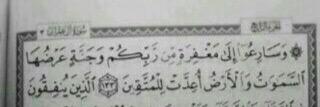 الجزء الرابع سورة آل عمران ٣
وَسَارِعُوٓا۟ إِلَىٰ مَغْفِرَةٍ مِّن رَّبِّكُمْ وَجَنَّةٍ عَرْضُهَا
ٱلسَّمَٰوَٰتُ وَٱلْأَرْضُ أُعِدَّتْ لِلْمُتَّقِينَ ١٣٣ ٱلَّذِينَ يُنفِقُونَ